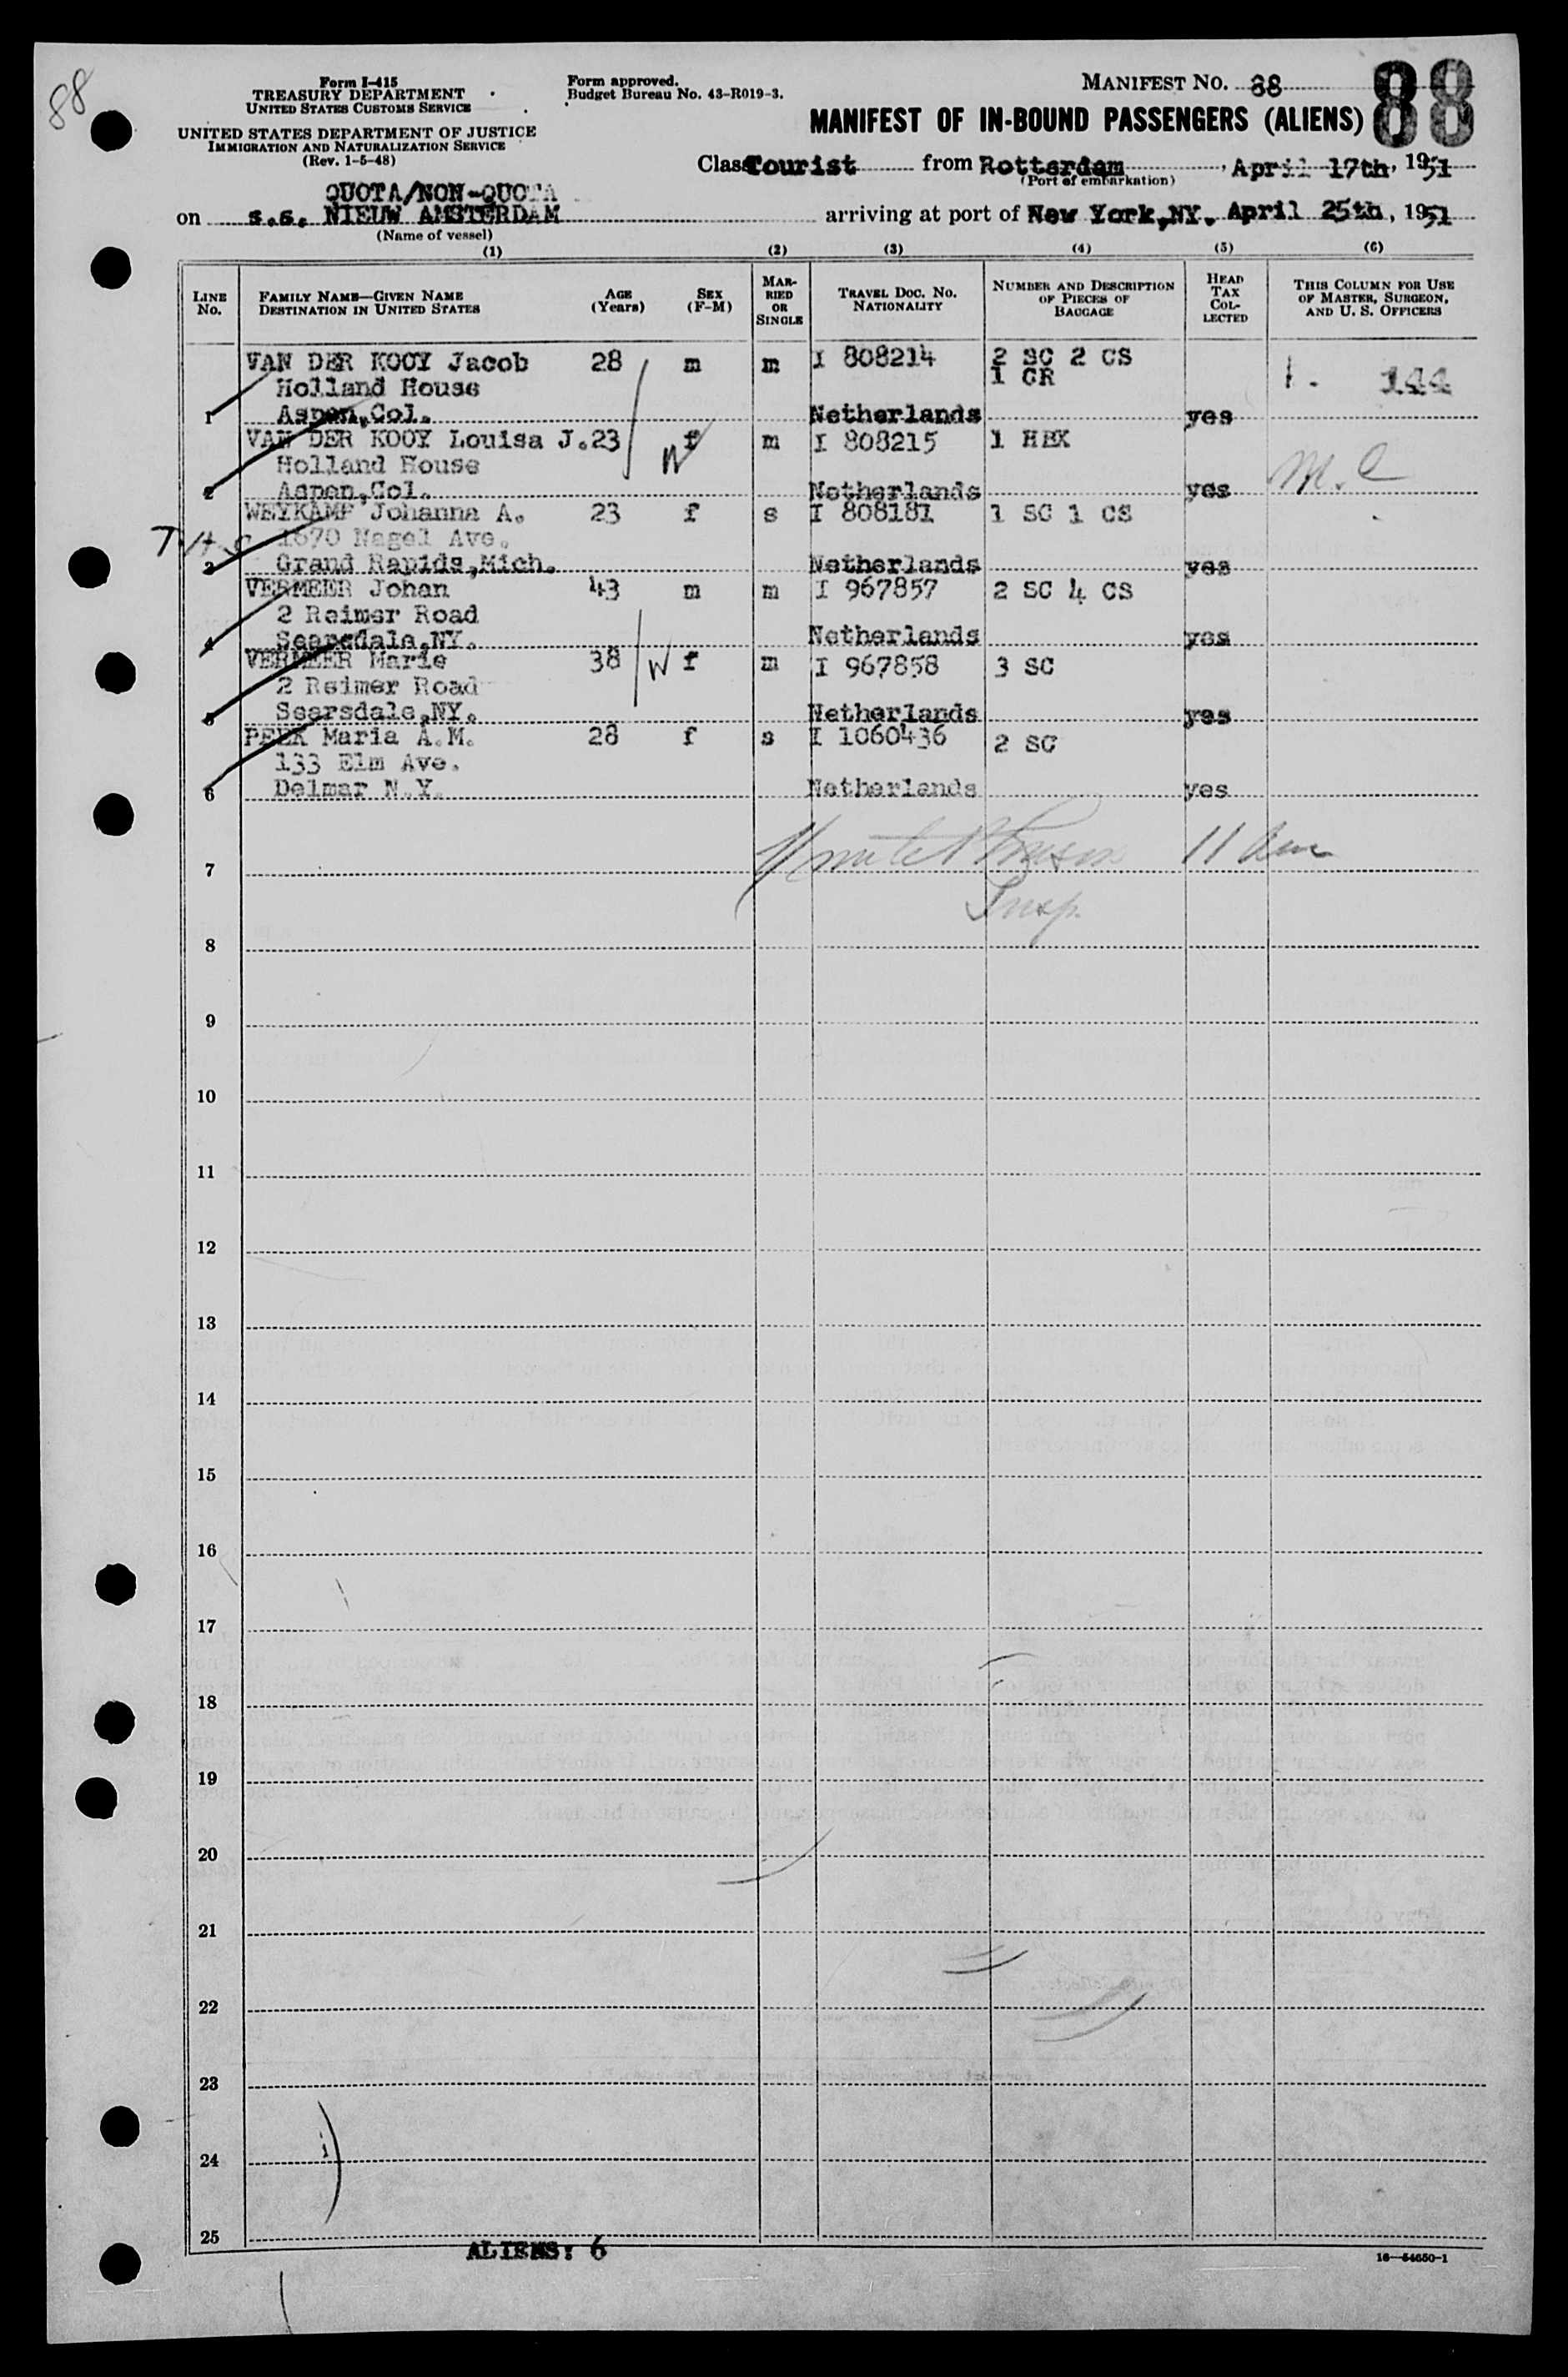 88
Form I-415
TREASURY DEPARTMENT
UNITED STATES CUSTOMS SERVICE
UNITED STATES DEPARTMENT OF JUSTICE
IMMIGRATION AND NATURALIZATION SERVICE
(Rev. 1-5-48)
Form approved.
Budget Bureau No. 43-R019-3.
MANIFEST NO. 88
88
MANIFEST OF IN-BOUND PASSENGERS (ALIENS)
Class Tourist from Rotterdam, April 17th, 1951
(Port of embarkation)
QUOTA/NON-QUOTA
on s.s. NIEUW AMSTERDAM arriving at port of New York,NY. April 25th, 1951
(Name of vessel)
(1) (2) (3) (4) (5) (6)
LINE No.
FAMILY NAME—GIVEN NAME
DESTINATION IN UNITED STATES
AGE (Years)
SEX (F-M)
MARRIED OR SINGLE
TRAVEL DOC. NO. NATIONALITY
NUMBER AND DESCRIPTION OF PIECES OF BAGGAGE
HEAD TAX COLLECTED
THIS COLUMN FOR USE OF MASTER, SURGEON, AND U. S. OFFICERS
VAN DER KOOY Jacob 28 m m I 808214 2 SC 2 CS
Holland House 1 CR 144
1 Aspen,Col. Netherlands yes
VAN DER KOOY Louisa J. 23 W f m I 808215 1 HBX
Holland House
2 Aspen,Col. Netherlands yes M.C
WEYKAMP Johanna A. 23 f s I 808181 1 SC 1 CS
1670 Nagel Ave.
3 Grand Rapids,Mich. Netherlands yes
VERMEER Johan 43 m m I 967857 2 SC 4 CS
2 Reimer Road
4 Scarsdale,NY. Netherlands yes
VERMEER Marie 38 W f m I 967858 3 SC
2 Reimer Road
5 Scarsdale,NY. Netherlands yes
PEEK Maria A.M. 28 f s I 1060436 2 SC
133 Elm Ave.
6 Delmar N.Y. Netherlands yes
7
Insp.
8
9
10
11
12
13
14
15
16
17
18
19
20
21
22
23
24
25
ALIENS: 6
16—54650-1